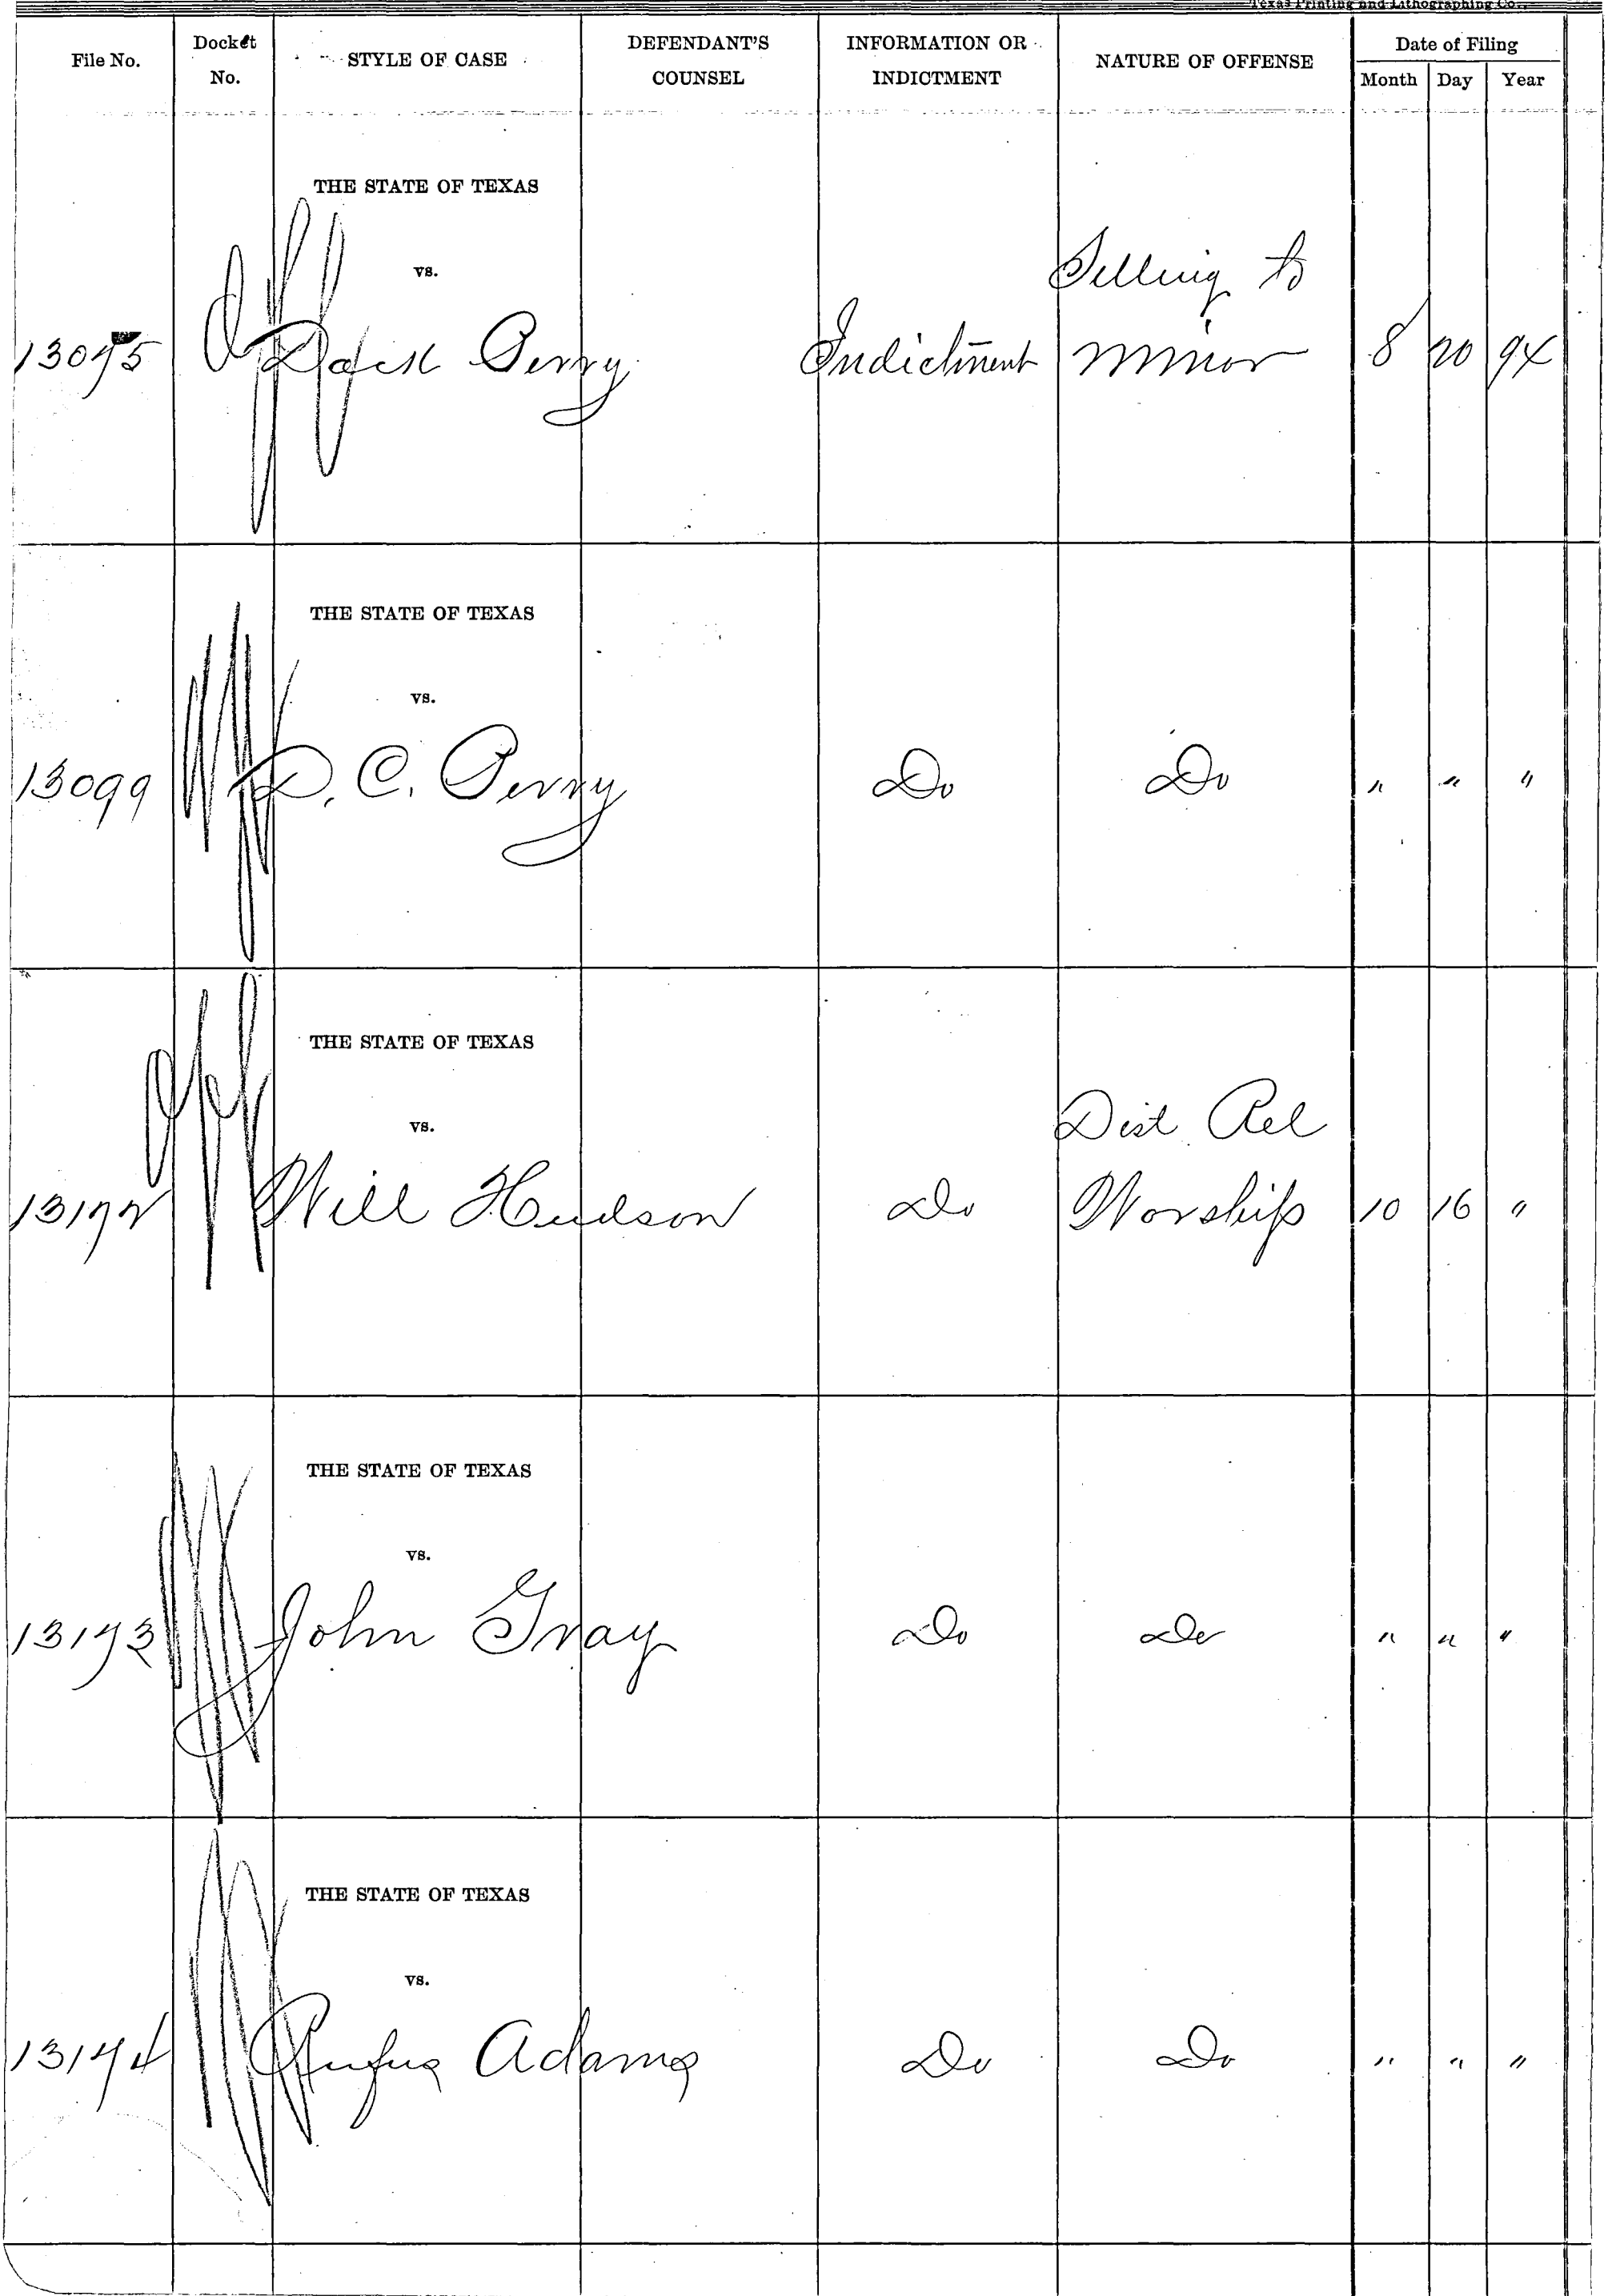 Texas Printing and Lithographing Co.
File No.
Docket No.
STYLE OF CASE
DEFENDANT'S COUNSEL
INFORMATION OR INDICTMENT
NATURE OF OFFENSE
Date of Filing
Month Day Year
THE STATE OF TEXAS
vs.
Selling to
Perry Indictment minor 8 20 94
THE STATE OF TEXAS
vs.
13099 D. C. Perry Do Do " " "
THE STATE OF TEXAS
vs.
Dist Rel
Will Hudson Do Worship 10 16 "
THE STATE OF TEXAS
vs.
John Gray Do Do " " "
THE STATE OF TEXAS
vs.
Rufus Adams Do Do " " "